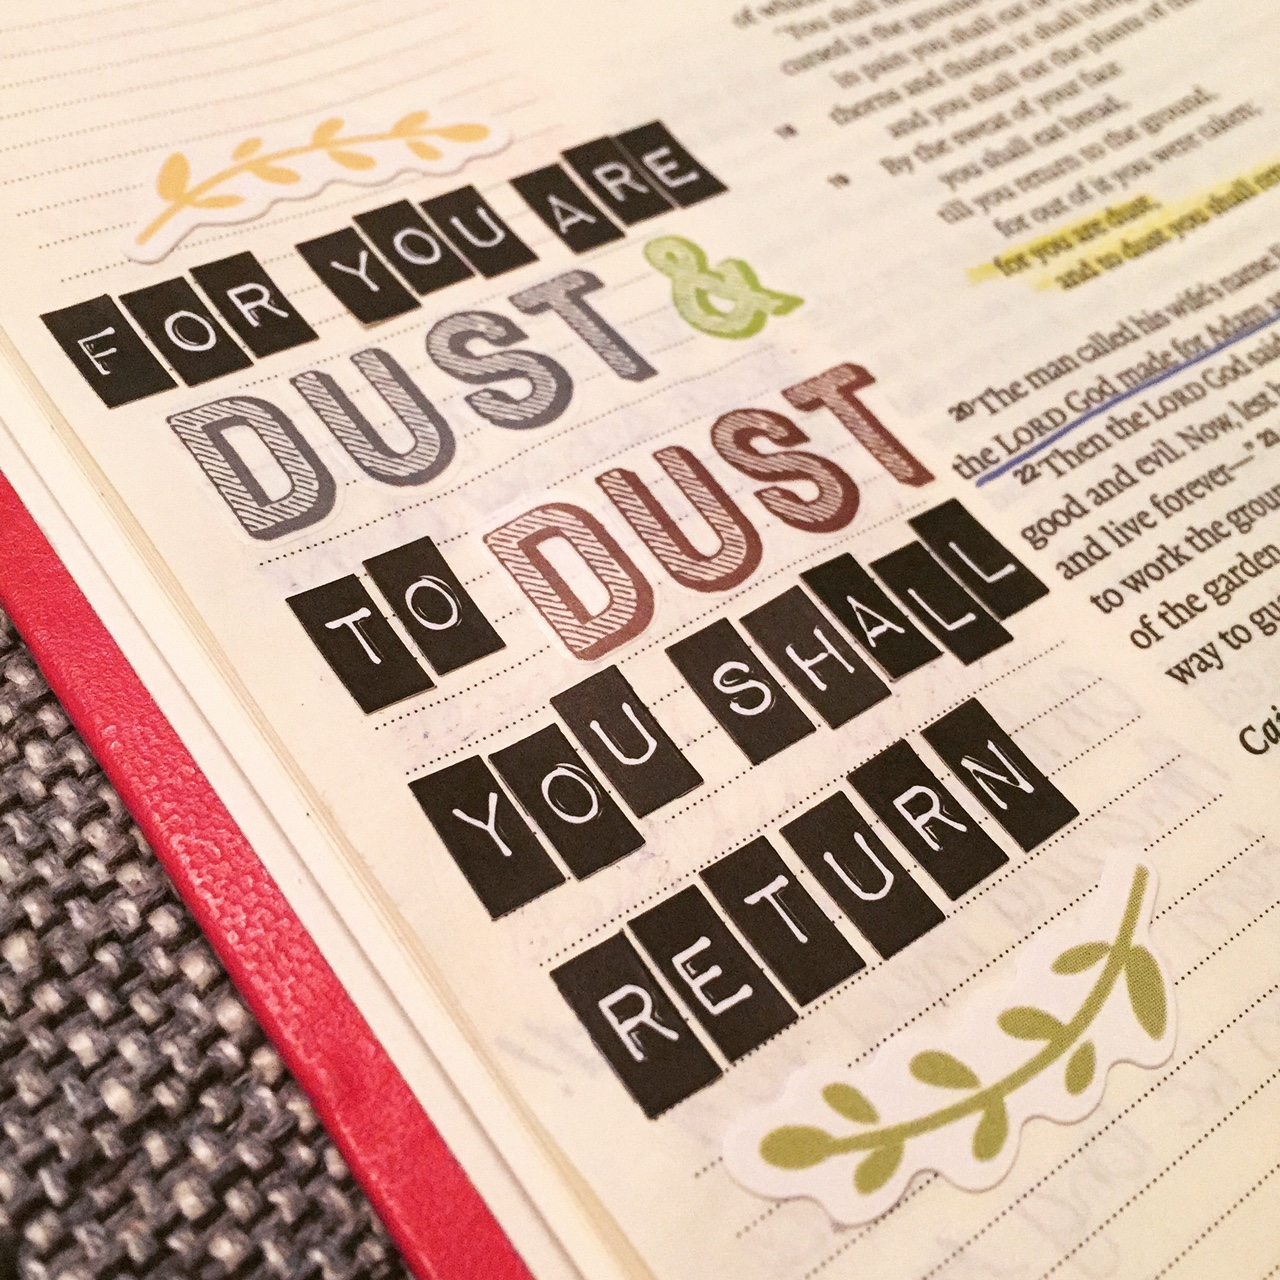 FOR YOU ARE
DUST &
TO DUST
YOU SHALL
RETURN
you shall
cursed is the ground
in pain you shall eat
thorns and thistles it shall bring
and you shall eat the plants of
By the sweat of your face
you shall eat bread,
till you return to the ground,
for out of it you were taken;
for you are dust,
and to dust you shall
20 The man called his wife's name
the LORD God made for Adam
22 Then the LORD God said
good and evil. Now, lest
and live forever—" 23
to work the
of the garden
way to
18
19